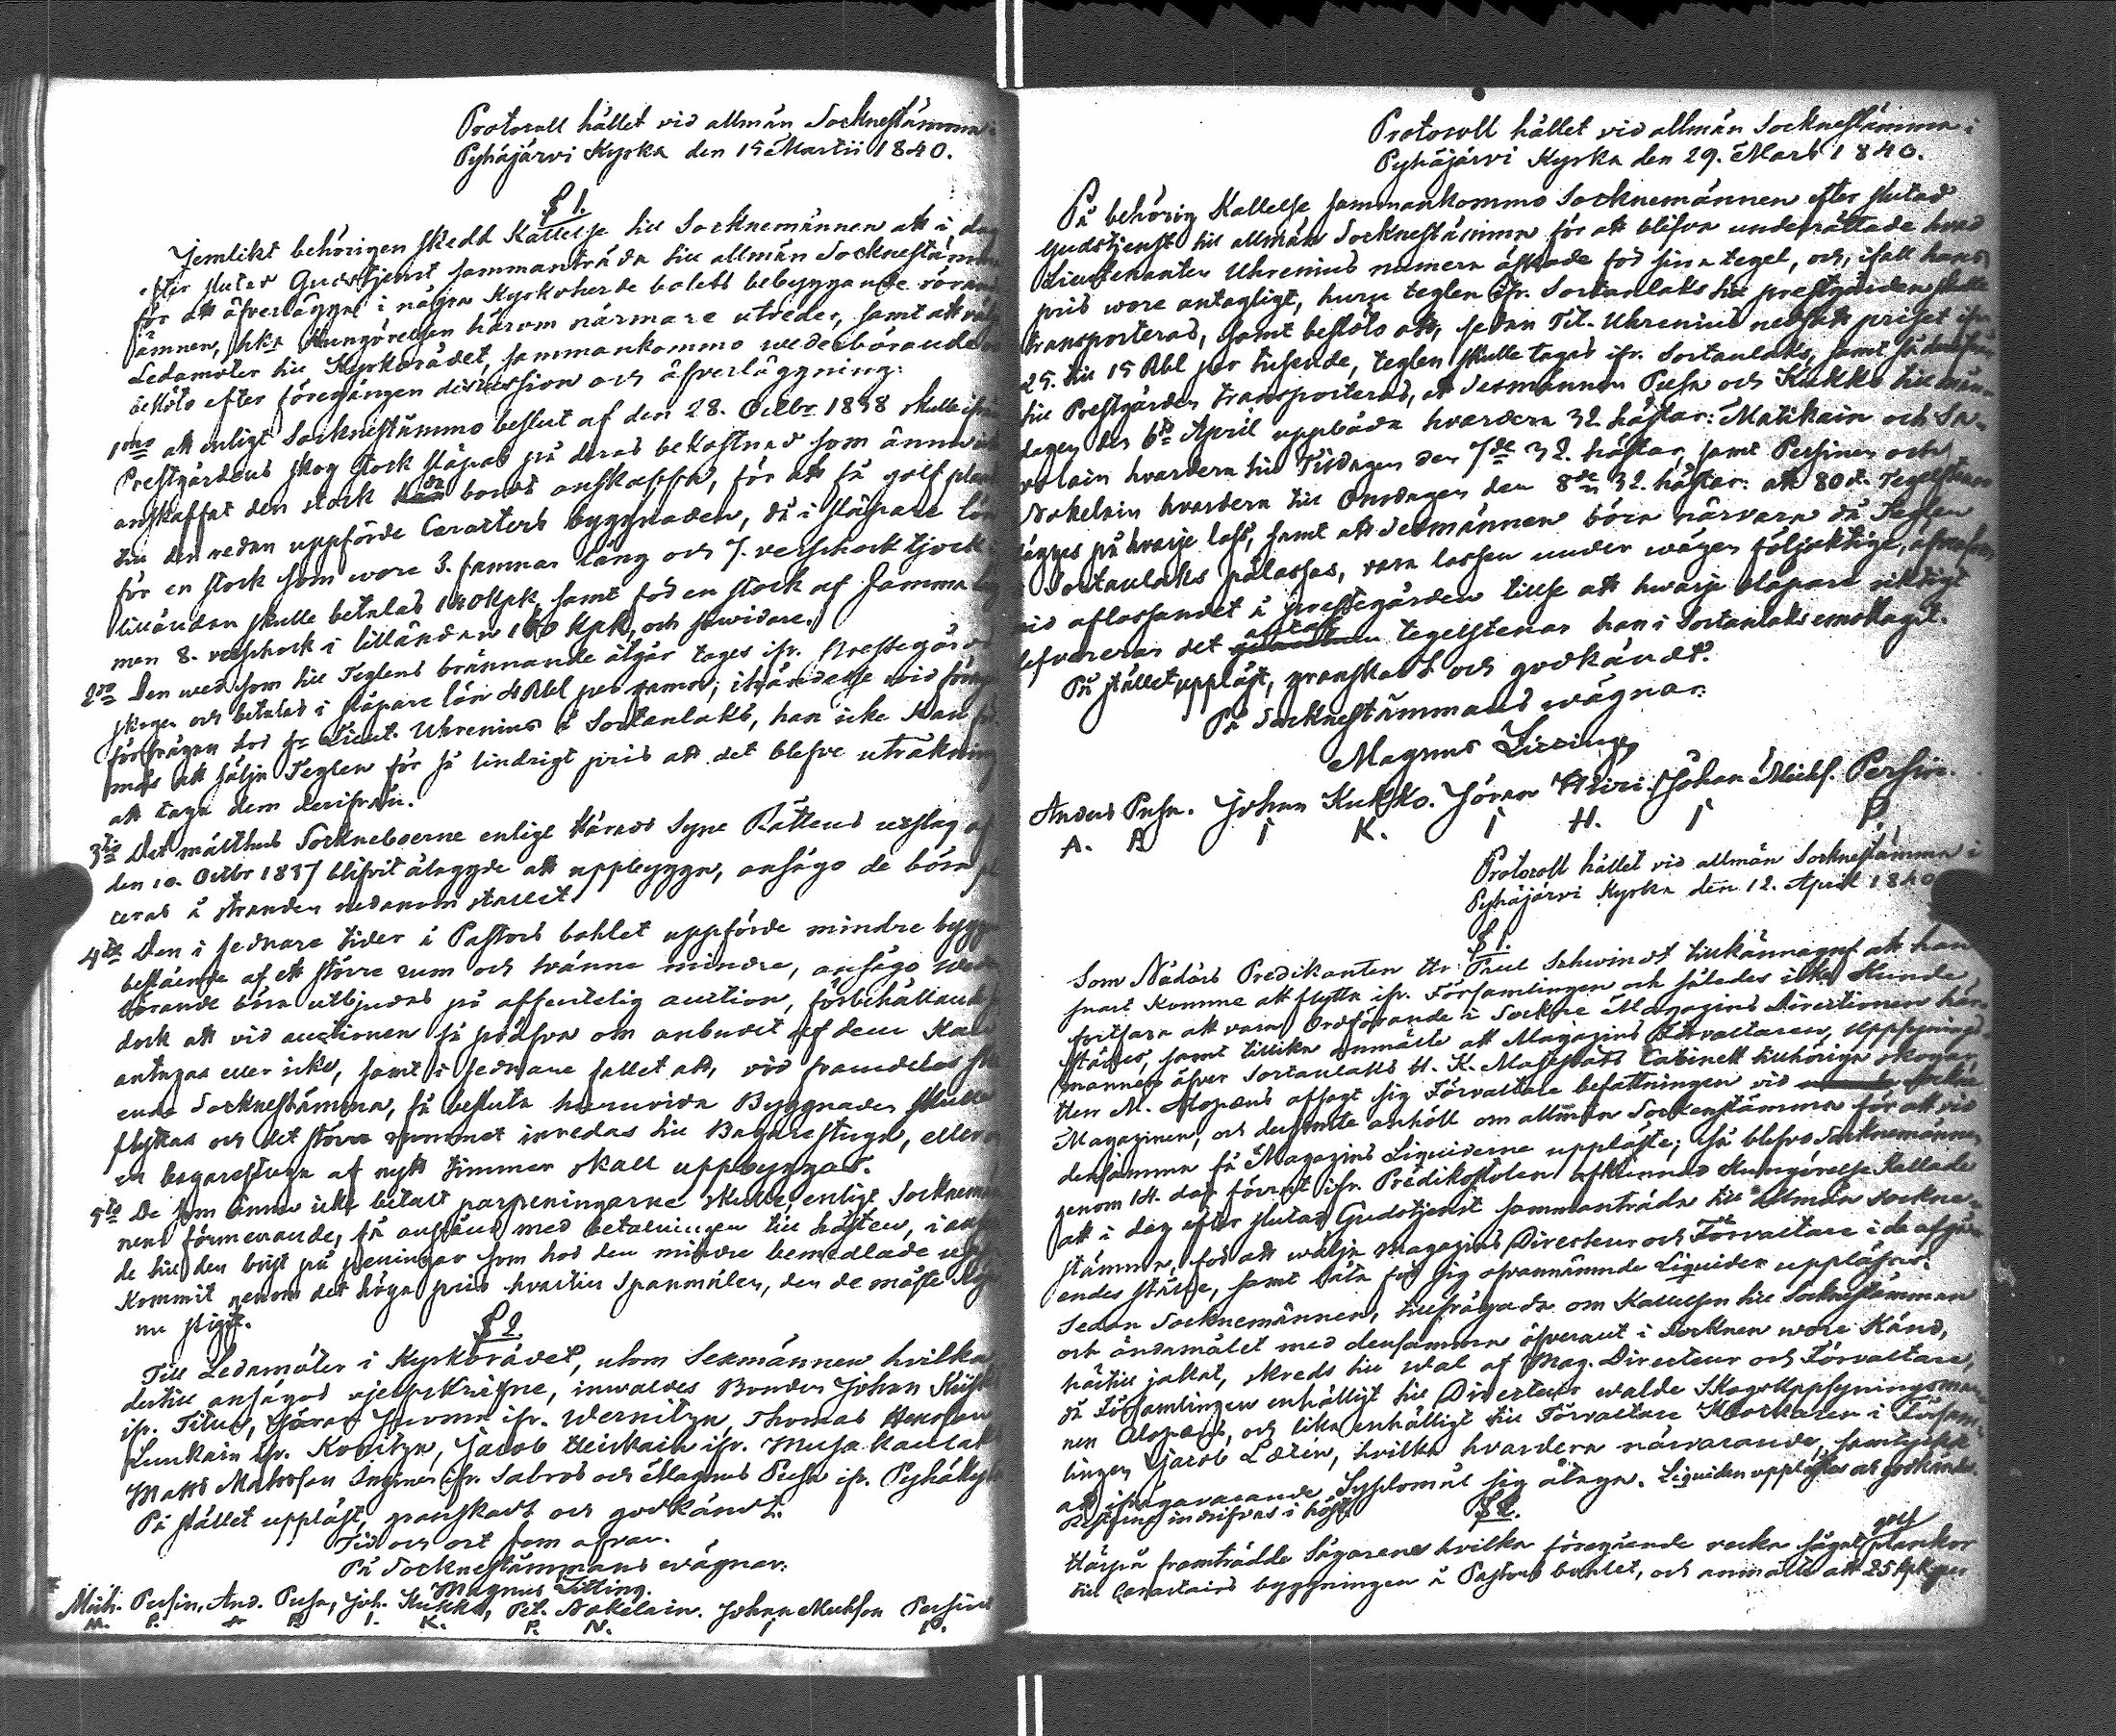 Protocoll hållet vid allmän Socknestämma i
Pyhäjärvi Kyrka den 15 Martii 1840.
§ 1.
Jemlikt behörigen skedd Kallelse till Socknemännen att i dag
efter slutad Gudstjenst sammanträda till allmän Socknestämma
för att öfverlägga i några Kyrkoherde bolets bebyggande rörande
ämnen, hka Kungörelsen härom närmare utreder, samt att välja
Ledamöter till Kyrkorådet, sammankommo wederbörande och
beslöto efter föregången discussion och öfverläggning:
1mo att enligt Socknestämmo beslut af den 28. Octbr 1838 skulle ifrån
Prestgårdens skog stock släpas på deras bekostnad som ännu ej
anskaffat den stock de borde anskaffa, för att få golf plankor
till den redan uppförde Caracters byggnaden, då i släpare lön
för en stock som wore 3. famnar lång och 7. verschock tjock i
lilländan skulle betalas 140 Kpk, samt för en stock af samma längd
men 8. verschock i lilländan 160 Kpk, och så widare.
2do Den wed som till Teglens brännande åtgår tages ifr. Prestegårds
skogen och betalas i släpare lön 4 Rbl per famn; i händelse vid förnyad
förfrågan hos Hr Lieut. Uhrenius å Sortanlaks, han icke kan för
mås att sälja Teglen för så lindrigt pris att det blefve uträkning
att taga dem derifrån.
3tio Det mälthus Sockneboerne enligt Härads Syne Rättens utslag af
den 10. Octbr 1837 blifvit ålagde att uppbygga, ansågo de böra pla
ceras å stranden nedanom stallet.
4to Den i sednare tider å Pastors bohlet uppförde mindre byggnad
bestående af ett större rum och tvänne mindre, ansågo weder
börande böra utbjudas på offentelig auction, förbehållande sig
dock att vid auctionen få pröfva om anbudet af dem kan
antagas eller icke, samt i sednare fallet att, vid framdeles ske
ende Socknestämma, få besluta huruvida Byggnaden skulle
flyttas och det större rummet inredas till Bagarestuga, eller
en bagarestuga af nytt timmer skall uppbyggas.
5to De som ännu icke betalt parpeningarne skulle, enligt Socknemän
nens förmenande, få anstånd med betalningen till hösten, i anse
de till den brist på peningar som hos den mindre bemedlade upp
kommit genom det höga pris hvartill Spanmålen, den de måste köpa
nu stigit.
§ 2.
Till Ledamöter i Kyrkorådet, utom Sexmännen hvilka
dertill ansågos sjelfskrifne, inwaldes Bonden Johan Kiiski
ifr. Titua, Göran Juvonn ifr. Wernitza, Thomas Henrikson
Lunkain ifr. Konitza, Jacob Heiskain ifr. Musakanlaks
Matts Matsson Inginen ifr. Salvos och Magnus Pusa ifr. Pyhäkylä
På stället uppläst, granskadt och godkändt.
Tid och ort som ofvan.
På Socknestämmans wägnar:
Magnus Zitting.
Mich. Persin, And. Pusa, Joh. Kukko, Pet. Nokelain. Johan Michson Persin
M. P. A P. I. K. P. N. I P.
Protocoll hållet vid allmän Socknestämma i
Pyhäjärvi Kyrka den 29. Mars 1840.
På behörig Kallelse sammankommo Socknemännen efter slutad
Gudstjenst till allmän Socknestämma för att blifva underrättade hvad
Lieutenanten Uhrenius numera äskade för sina tegel, och, ifall hans
pris wore antagligt, huru teglen ifr. Sortanlaks till prestgården skulle
transporteras, samt beslöto att, sedan Tit. Uhrenius nedsatt priset ifr.
25. till 15 Rbl per tusende, teglen skulle tagas ifr. Sortanlaks, samt så
till Prestgården transporteras, att Sexmännen Pusa och Kukko till mån-
dagen den 6te April uppbåda hvardera 32. hästar: Matikain och Sa-
volain hvardera till Tisdagen den 7de 32. hästar, samt Persinen och
Nokelain hvardera till Onsdagen den 8de 32. hästar: att 80 st. Tegelstenar
lägges på hvarje lass, samt att Sexmännen böra närvara då Teglen
i Sortanlaks pålassas, vara lassen under wägen följaktige,
vid aflassandet å prestegården tillse att hwarje släpare riktigt
lefvererar det antal tegelstenar han i Sortanlaks emottagit.
På stället uppläst, granskadt och godkändt.
På Socknestämmans wägnar:
Magnus Zitting
Anders Pusa. Johan Kukko. Jöran Hiiri. Johan Michs. Persin.
A. P. I K. I H. I P.
Protocoll hållet vid allmän Socknestämma i
Pyhäjärvi Kyrka den 12. April 1840
§ 1.
Som Nådårs Predikanten Hr Paul Schwindt tillkännagaf att han
snart komme att flytta ifr. Församlingen och således icke kunde
fortfara att vara Ordförande i Sockne Magazins Directionen här-
städes, samt tillika anmälte att Magazins Förvaltaren, Uppsynings-
mannen öfver Sortanlaks H. K. Majestäts Cabinett tillhöriga skogar,
Herr M. Alopæus afsagt sig Förvaltare befattningen vid Sockne
Magazinen, och desamte anhöllt om allmän Sockenstämma för att vid
densamma få Magazins Liquiderne uppläste; så blefvo Socknemännen
genom 14. dar förut ifr. Predikstolen afkunnad Kungörelse kallade
att i dag efter slutad Gudstjenst sammanträda till allmän Sockne-
stämma, för att wälja Magazins Directeur och Förvaltare i de afgå-
endes ställe, samt låta för sig ofvannämnde Liquider uppläsas.
Sedan Socknemännen, tillfrågade om Kallelsen till Socknestämman
och ändamålet med densamma öfverallt i Socknen wore känd,
härtill jakat, skreds till wal af Mag. Directeur och Förvaltare,
då Församlingen enhälligt till Directeur walde Skogs Uppsyningsman-
nen Alopæus, och lika enhälligt till Förvaltare Klockaren i Försam-
lingen Jacob Lætén, hvilka hvardera närvarande, samtyckte
att ifrågavarande Sysslomål sig åtaga. Liquiden upplästes och godkändes.
Restierne indrifvas i höst.
§ 2.
Härpå framträdde Sågarena hvilka föregående vecka sågat golf plankor
till Caractairs byggningen å Pastors bohlet, och anmälte att 25 kpk per